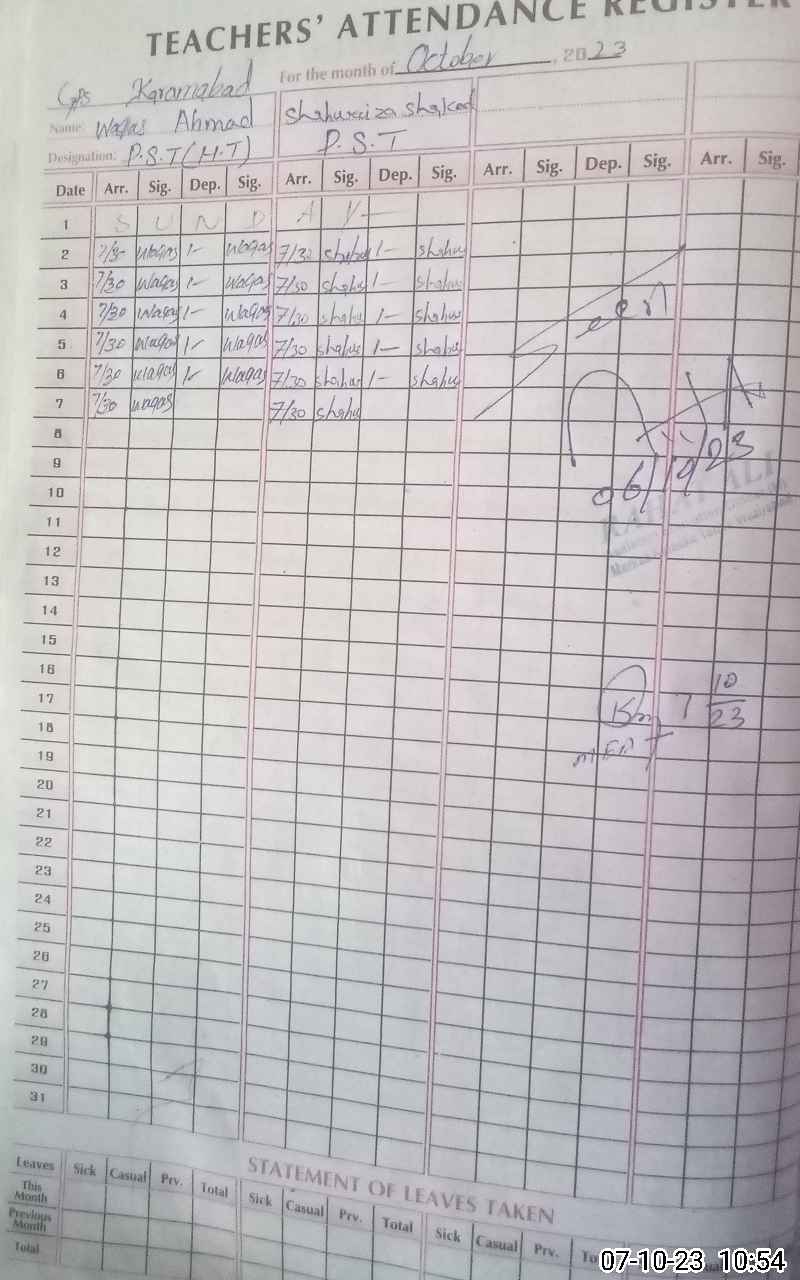 TEACHERS' ATTENDANCE REGISTER
For the month of October, 2023
GPS Karamabad
Name: Waqas Ahmad Shahwaiza Shakoor
Designation: P.S.T (H.T) P.S.T
Date Arr. Sig. Dep. Sig. Arr. Sig. Dep. Sig. Arr. Sig. Dep. Sig. Arr. Sig.
1 S U N D A Y
2 7/30 Waqas 1- Waqas 7/30 Shahw 1- Shahw
3 7/30 Waqas 1- Waqas 7/30 Shahw 1- Shahw
4 7/30 Waqas 1- Waqas 7/30 Shahw 1- Shahw
5 7/30 Waqas 1- Waqas 7/30 Shahw 1- Shahw
6 7/30 Waqas 1- Waqas 7/30 Shahw 1- Shahw
7 7/30 Waqas 7/30 Shahw
Seen
8
9
10
11
12
13
14
15
16
17 7 10/23
18
19 MEA
20
21
22
23
24
25
26
27
28
29
30
31
STATEMENT OF LEAVES TAKEN
Leaves Sick Casual Prv. Total Sick Casual Prv. Total Sick Casual Prv.
This Month
Previous Month
Total
07-10-23 10:54